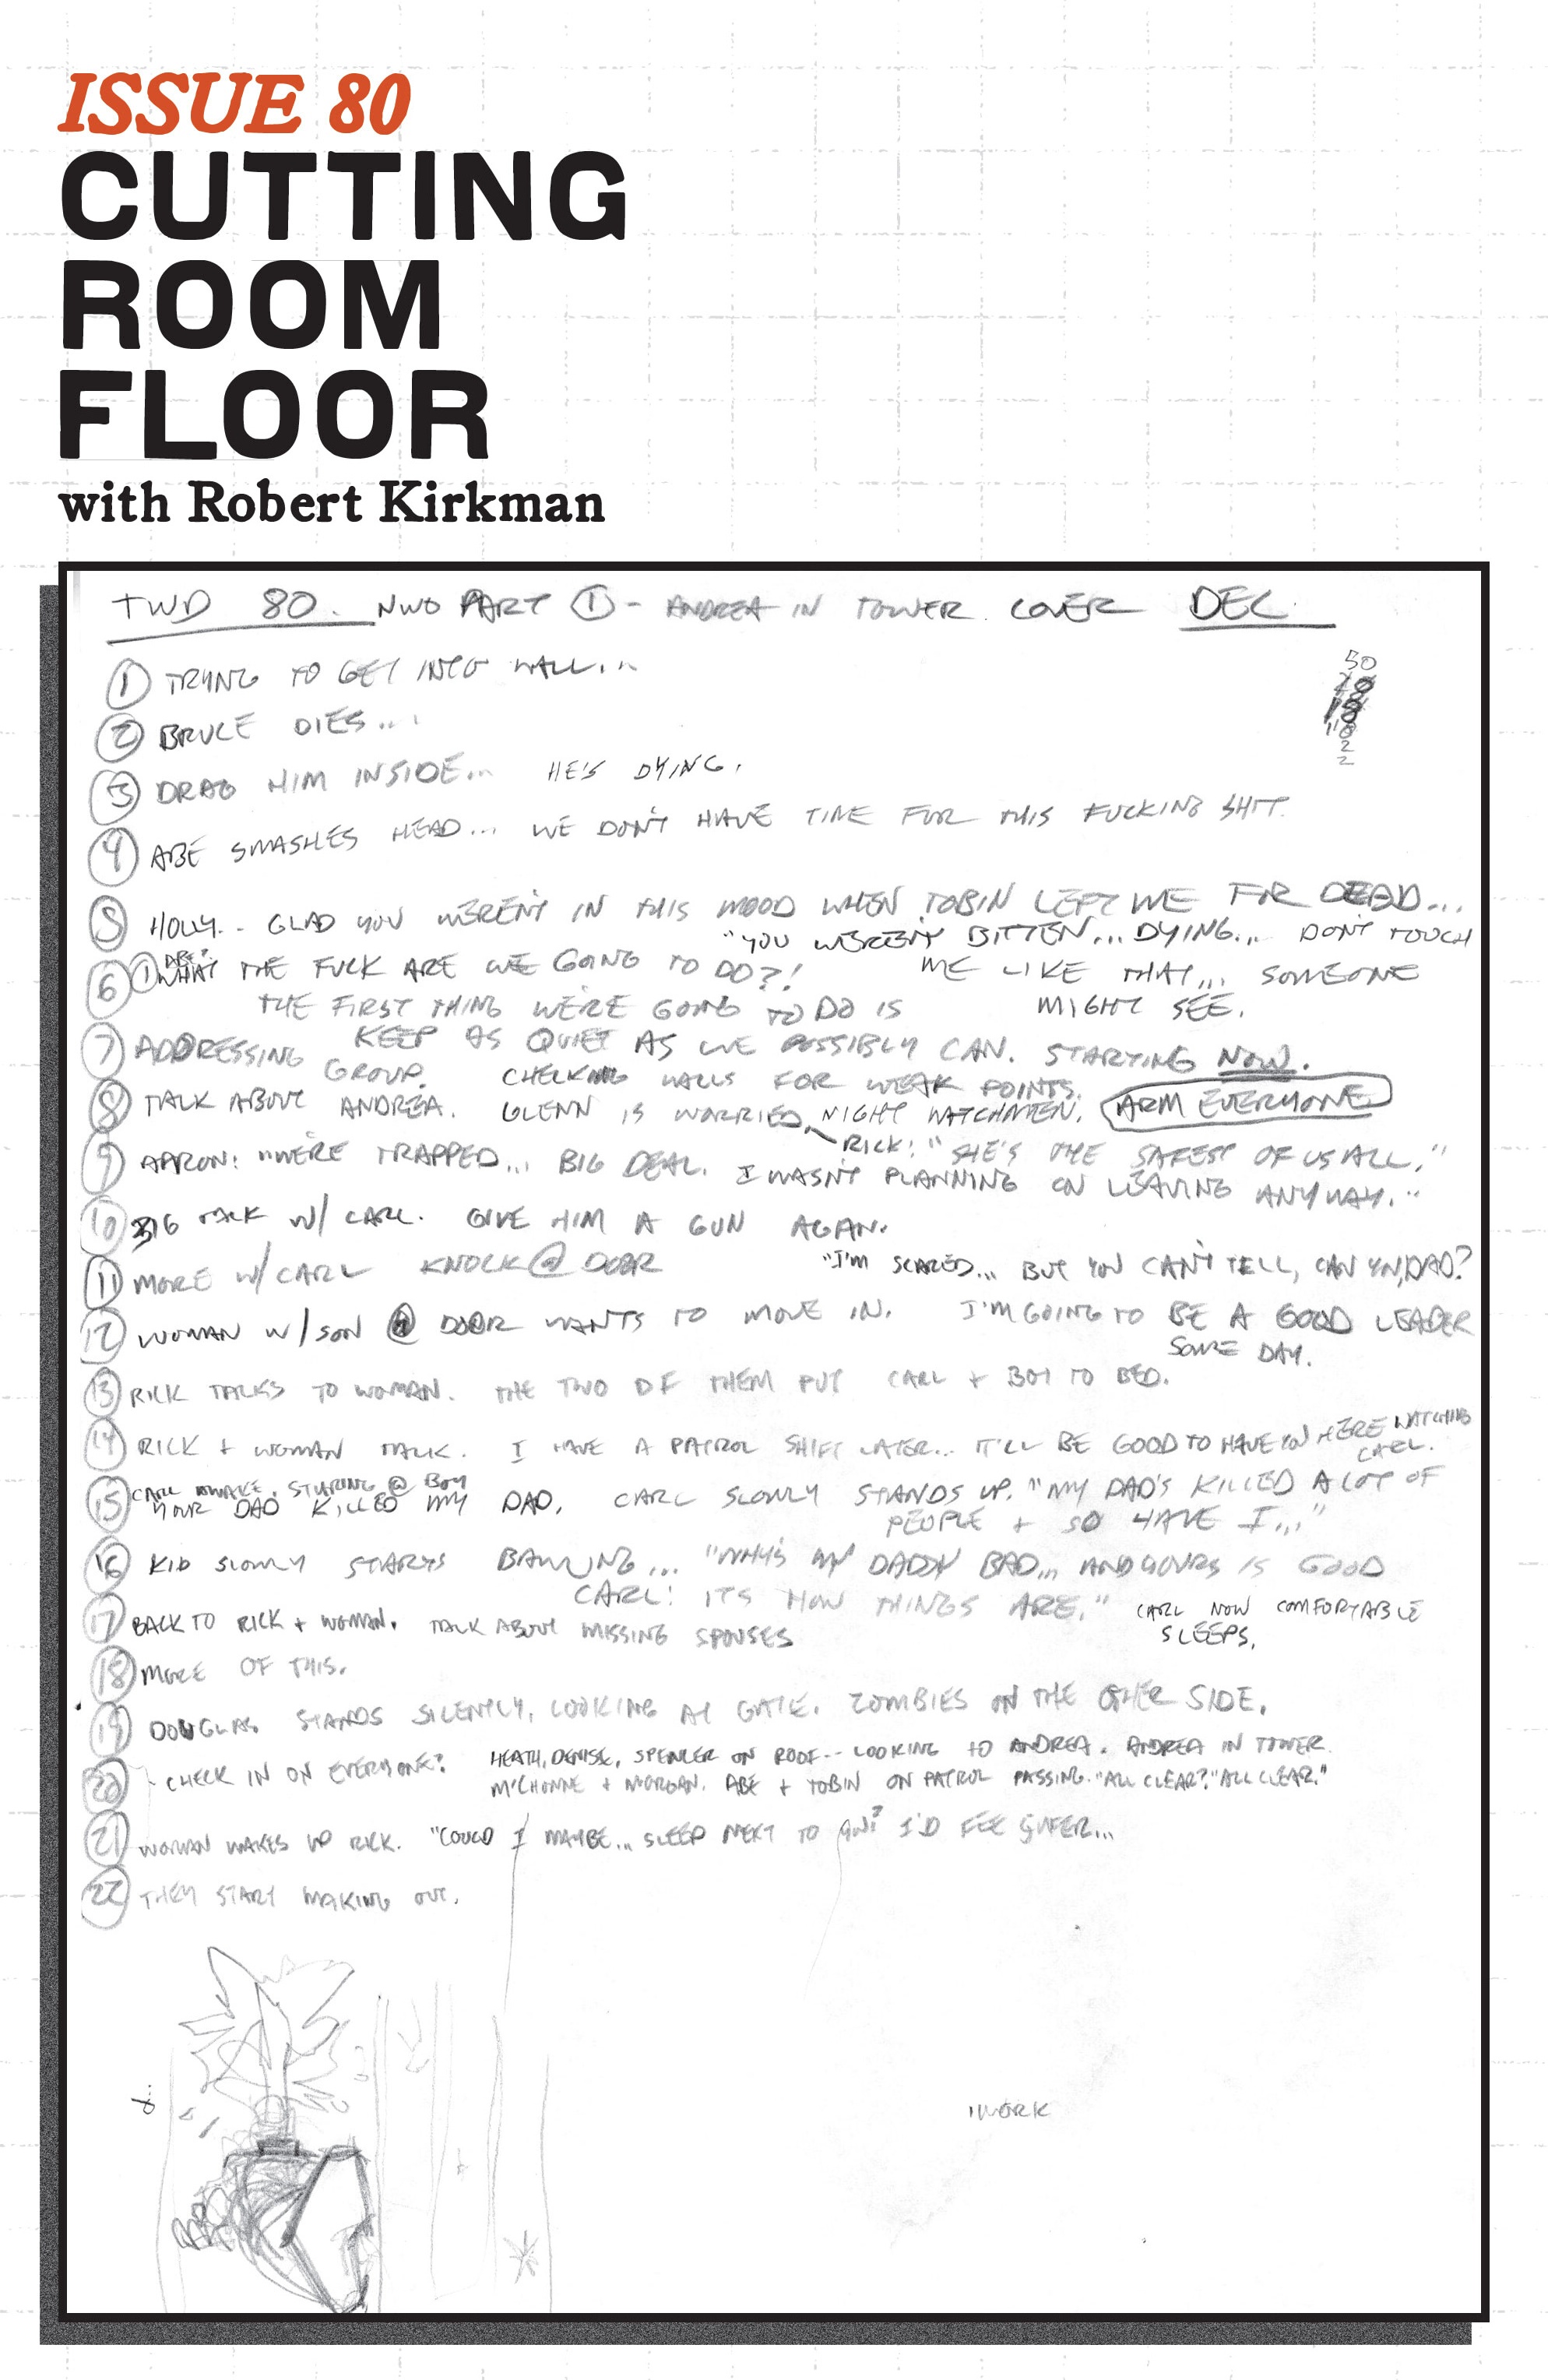 ISSUE 80
CUTTING
ROOM
FLOOR
with Robert Kirkman
TWD 80. NWO PART ① - ANDREA IN TOWER COVER DEC.
50
2
2
① TRYING TO GET INTO WALL...
② BRUCE DIES...
③ DRAG HIM INSIDE... HE'S DYING.
④ ABE SMASHES HEAD... WE DON'T HAVE TIME FOR THIS FUCKING SHIT.
⑤ HOLLY.. GLAD YOU WEREN'T IN THIS MOOD WHEN TOBIN LEFT ME FOR DEAD...
"YOU WEREN'T BITTEN... DYING... DON'T TOUCH
ME LIKE THAT... SOMEONE
MIGHT SEE.
⑥ ① ABE: WHAT THE FUCK ARE WE GOING TO DO?!
THE FIRST THING WE'RE GOING TO DO IS
KEEP AS QUIET AS WE POSSIBLY CAN. STARTING NOW.
⑦ ADDRESSING GROUP. CHECKING WALLS FOR WEAK POINTS.
NIGHT WATCHMEN. ARM EVERYONE
⑧ TALK ABOUT ANDREA. GLENN IS WORRIED.
RICK: "SHE'S THE SAFEST OF US ALL."
⑨ AARON: "WE'RE TRAPPED... BIG DEAL. I WASN'T PLANNING ON LEAVING ANYWAY."
⑩ BIG TALK W/ CARL. GIVE HIM A GUN AGAN.
⑪ MORE W/ CARL KNOCK @ DOOR "I'M SCARED... BUT YOU CAN'T TELL, CAN YOU, DAD?
I'M GOING TO BE A GOOD LEADER
SOME DAY.
⑫ WOMAN W/ SON @ DOOR WANTS TO MOVE IN.
⑬ RICK TALKS TO WOMAN. THE TWO OF THEM PUT CARL + BOY TO BED.
⑭ RICK + WOMAN TALK. I HAVE A PATROL SHIFT LATER... IT'LL BE GOOD TO HAVE YOU HERE WATCHING
CARL.
⑮ CARL AWAKE, STARING @ BOY
YOUR DAD KILLED MY DAD. CARL SLOWLY STANDS UP. "MY DAD'S KILLED A LOT OF
PEOPLE + SO HAVE I..."
⑯ KID SLOWLY STARTS BAWLING... "WHY'S MY DADDY BAD... AND YOURS IS GOOD
CARL: ITS HOW THINGS ARE." CARL NOW COMFORTABLE
SLEEPS.
⑰ BACK TO RICK + WOMAN. TALK ABOUT MISSING SPOUSES
⑱ MORE OF THIS.
⑲ DOUGLAS STANDS SILENTLY, LOOKING AT GATE. ZOMBIES ON THE OTHER SIDE.
⑳ CHECK IN ON EVERYONE? HEATH, DENISE, SPENCER ON ROOF-- LOOKING TO ANDREA. ANDREA IN TOWER.
M'CHONNE + MORGAN. ABE + TOBIN ON PATROL PASSING. "ALL CLEAR?" "ALL CLEAR."
㉑ WOMAN WAKES UP RICK. "COULD I MAYBE... SLEEP NEXT TO YOU? I'D FEEL SAFER...
㉒ THEY START MAKING OUT.